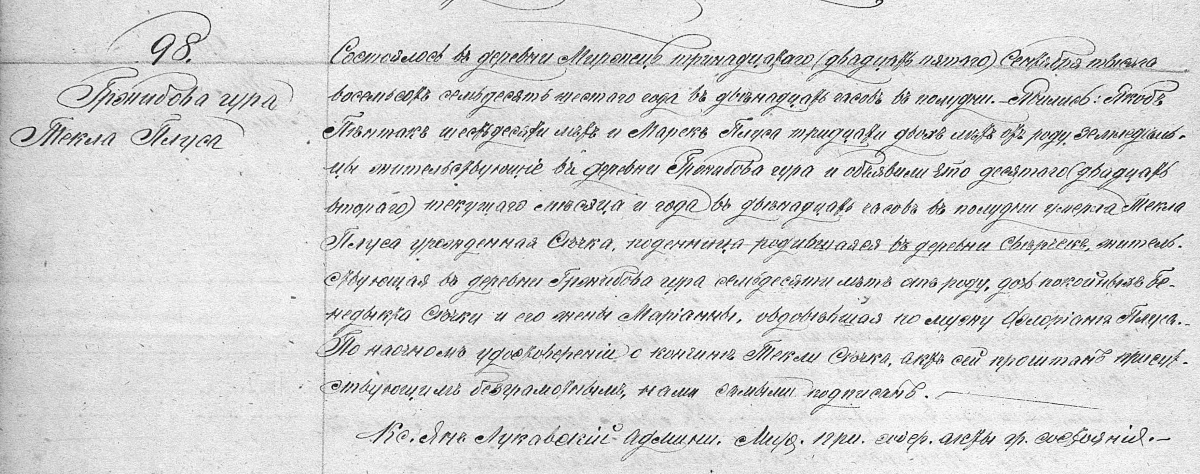 98.
Гржибова гура
Текла Плуса
Состоялось въ деревни Мирженцъ тринадцатаго (двадцать пятаго) Сентября тысяча
восемьсотъ семьдесятъ шестаго года въ двѣнадцать часовъ въ полудни. – Явились: Якобъ
Пѣнтакъ шестьдесяти лѣтъ и Марекъ Плуса тридцати двохъ лѣтъ отъ роду, земледѣль-
цы жительствующіе въ деревни Гржибова гура и объявили что десятаго (двадцать
втораго) текущаго мѣсяца и года въ двѣнадцать часовъ въ полудни умерла Текла
Плуса урожденная Сючка, поденщица родившаяся въ деревни Свѣрчекъ, житель-
ствующая въ деревни Гржибова гура семьдесяти лѣтъ отъ роду, дочь покойныхъ Бе-
недыкта Сючки и его жены Маріанны, овдовѣвшая по мужу Флоріанѣ Плуса. –
По наочномъ удостовереніи о кончинѣ Текли Сючка, актъ сей прочитанъ присут-
ствующимъ безграмотнымъ, нами самыми подписанъ. –
Кс. Янъ Лукавскій Админи. Мирж. при. содер. акты гр. состоянія. –